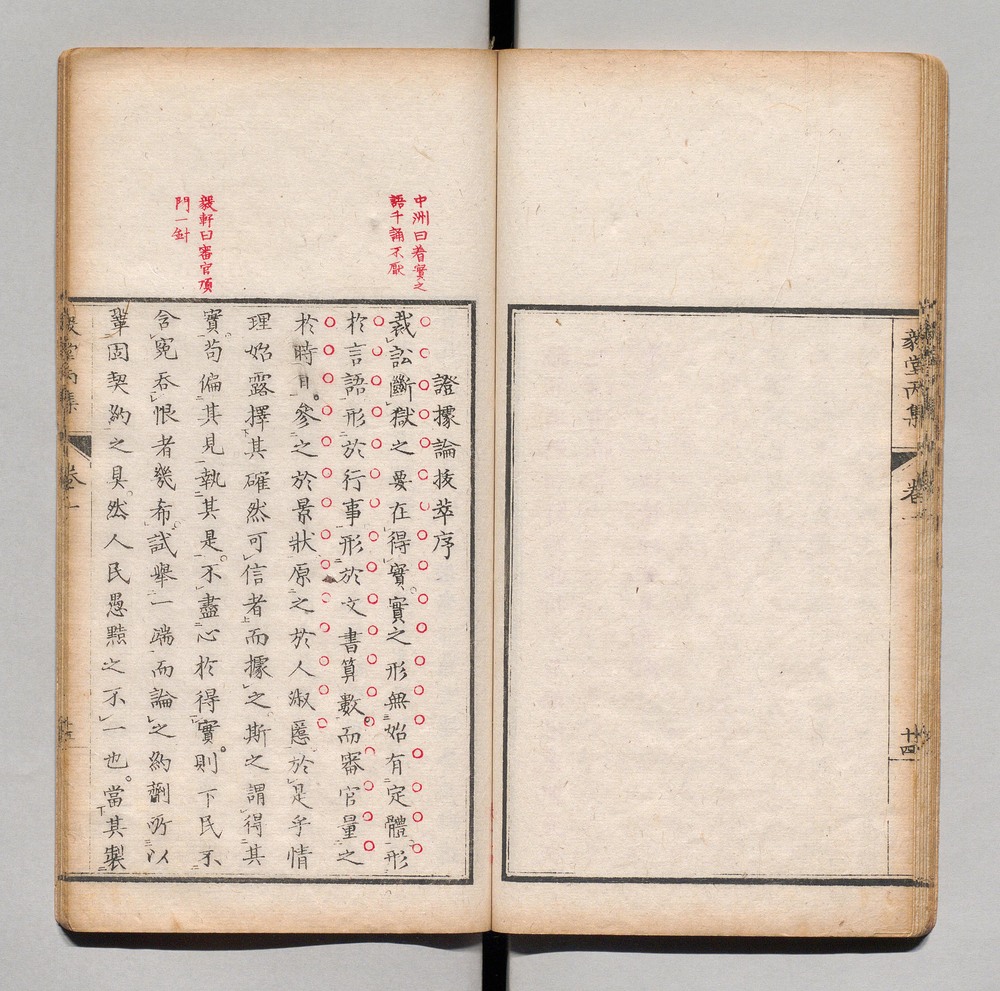 毅堂丙集
卷
十四
證據論拔萃序
裁訟斷獄之要在得實實之形無始有定體形
於言語形於行事形於文書算數而審官量之
於時日參之於景狀原之於人淑慝於是乎情
理始露擇其確然可信者而據之斯之謂得其
實苟偏其見執其是不盡心於得實則下民不
含冤吞恨者幾希試舉一端而論之約劑所以
鞏固契約之具然人民愚黠之不一也當其製
中洲曰着實之
語千誦不厭
毅軒曰審官頂
門一針